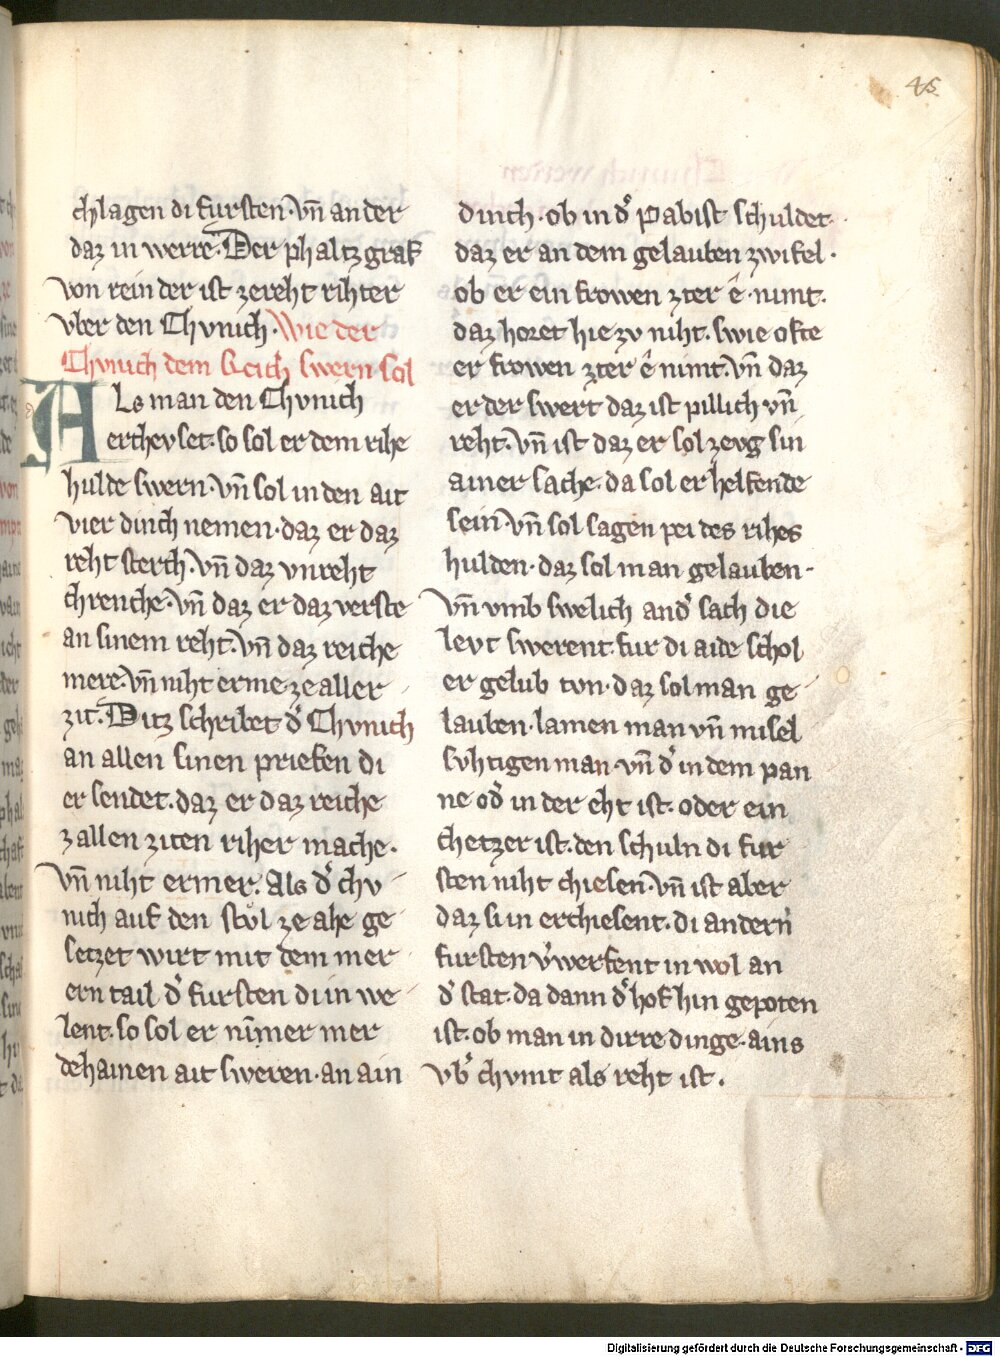 45
chlagen di fursten·vn̄ an der
daz in werre·Der phaltzgraf
von rein der ist zereht rihter
vber den Chvnich·Wie der
Chvnich dem Reich swern sol
ALs man den Chvnich
erchevset·so sol er dem rihe
hulde swern·vn̄ sol in den ait
vier dinch nemen·daz er daz
reht sterch·vn̄ daz vnreht
chrenche·vn̄ daz er daz verste
an sinem reht·vn̄ daz reiche
mere·vn̄ niht erme ze aller
zit·Ditz schribet d' Chvnich
an allen sinen priefen di
er sendet·daz er daz reiche
zallen ziten riher mache·
vn̄ niht ermer·Als d' chv
nich auf den stůl ze ahe ge
setzet wirt mit dem mer
ern tail d' fursten di in we
lent·so sol er nim̄er mer
dehainen ait sweren·an ain
dinch·ob in d' Pabist schuldet·
daz er an dem gelauben zwifel·
ob er ein frowen zter ê·nimt·
daz horet hie zv niht·swie ofte
er frowen zter ê nimt·vn̄ daz
er der swert daz ist pillich vn̄
reht·vn̄ ist daz er sol zevg sin
ainer sache·da sol er helfende
sein·vn̄ sol sagen pei des rihes
hulden·daz sol man gelauben·
vn̄ vmb swelich and' sach die
levt swerent·fur di aide schol
er gelub tvn·daz sol man ge
lauben·lamen man vn̄ misel
svhtigen man·vn̄ d' in dem pan
ne od' in der eht ist·oder ein
chetzer ist·den schuln di fur
sten niht chiesen·vn̄ ist aber
daz si in erchiesent·di andern
fursten v'werfent in wol an
d' stat·da dann d' hof hin gepoten
ist·ob man in dirre dinge·ains
vb' chvmt als reht ist·
Digitalisierung gefördert durch die Deutsche Forschungsgemeinschaft - DFG